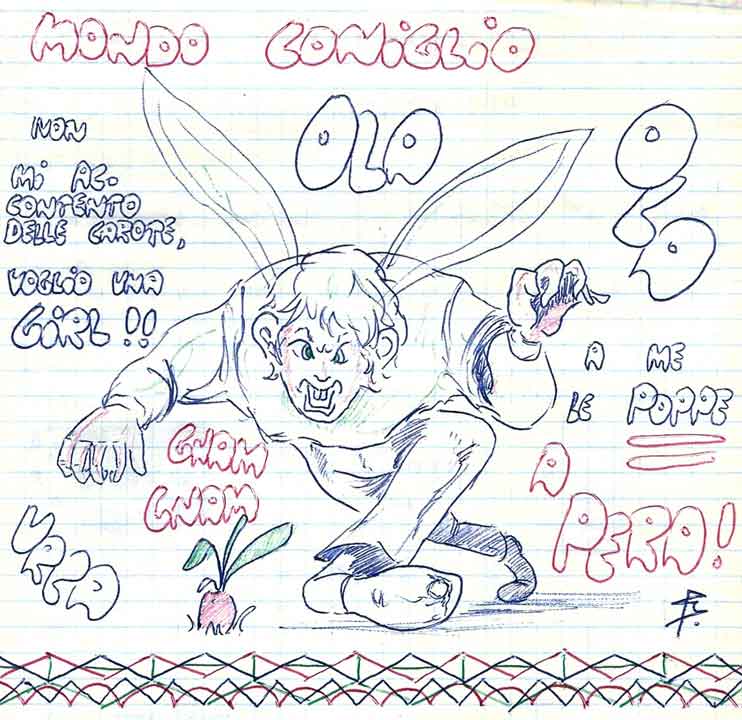 MONDO CONIGLIO
NON
MI AC-
CONTENTO
DELLE CAROTE,
VOGLIO UNA
GIRL!!
OLA
OLA
A ME
LE POPPE
A
PERA!
GNAM
GNAM
URCA